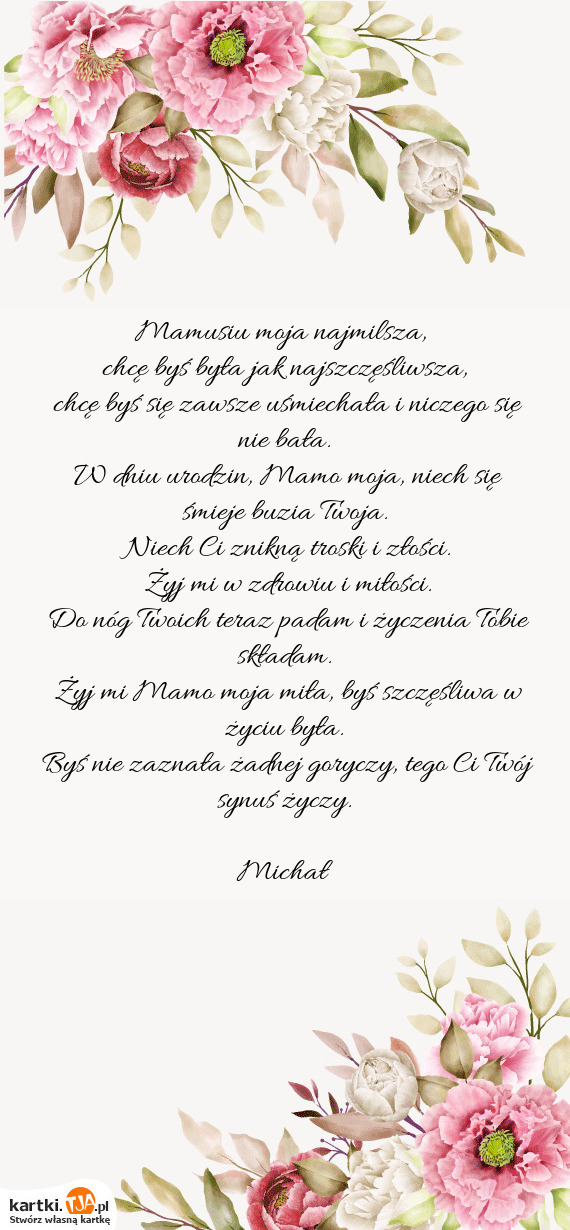 Mamusiu moja najmilsza,
chcę byś była jak najszczęśliwsza,
chcę byś się zawsze uśmiechała i niczego się
nie bała.
W dniu urodzin, Mamo moja, niech się
śmieje buzia Twoja.
Niech Ci znikną troski i złości.
Żyj mi w zdrowiu i miłości.
Do nóg Twoich teraz padam i życzenia Tobie
składam.
Żyj mi Mamo moja miła, byś szczęśliwa w
życiu była.
Byś nie zaznała żadnej goryczy, tego Ci Twój
synuś życzy.
Michał
kartki.TJA.pl
Stwórz własną kartkę